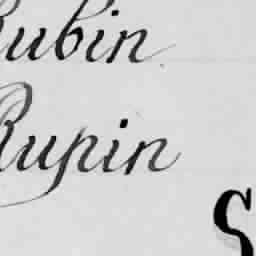 Rubin
Rupin
S